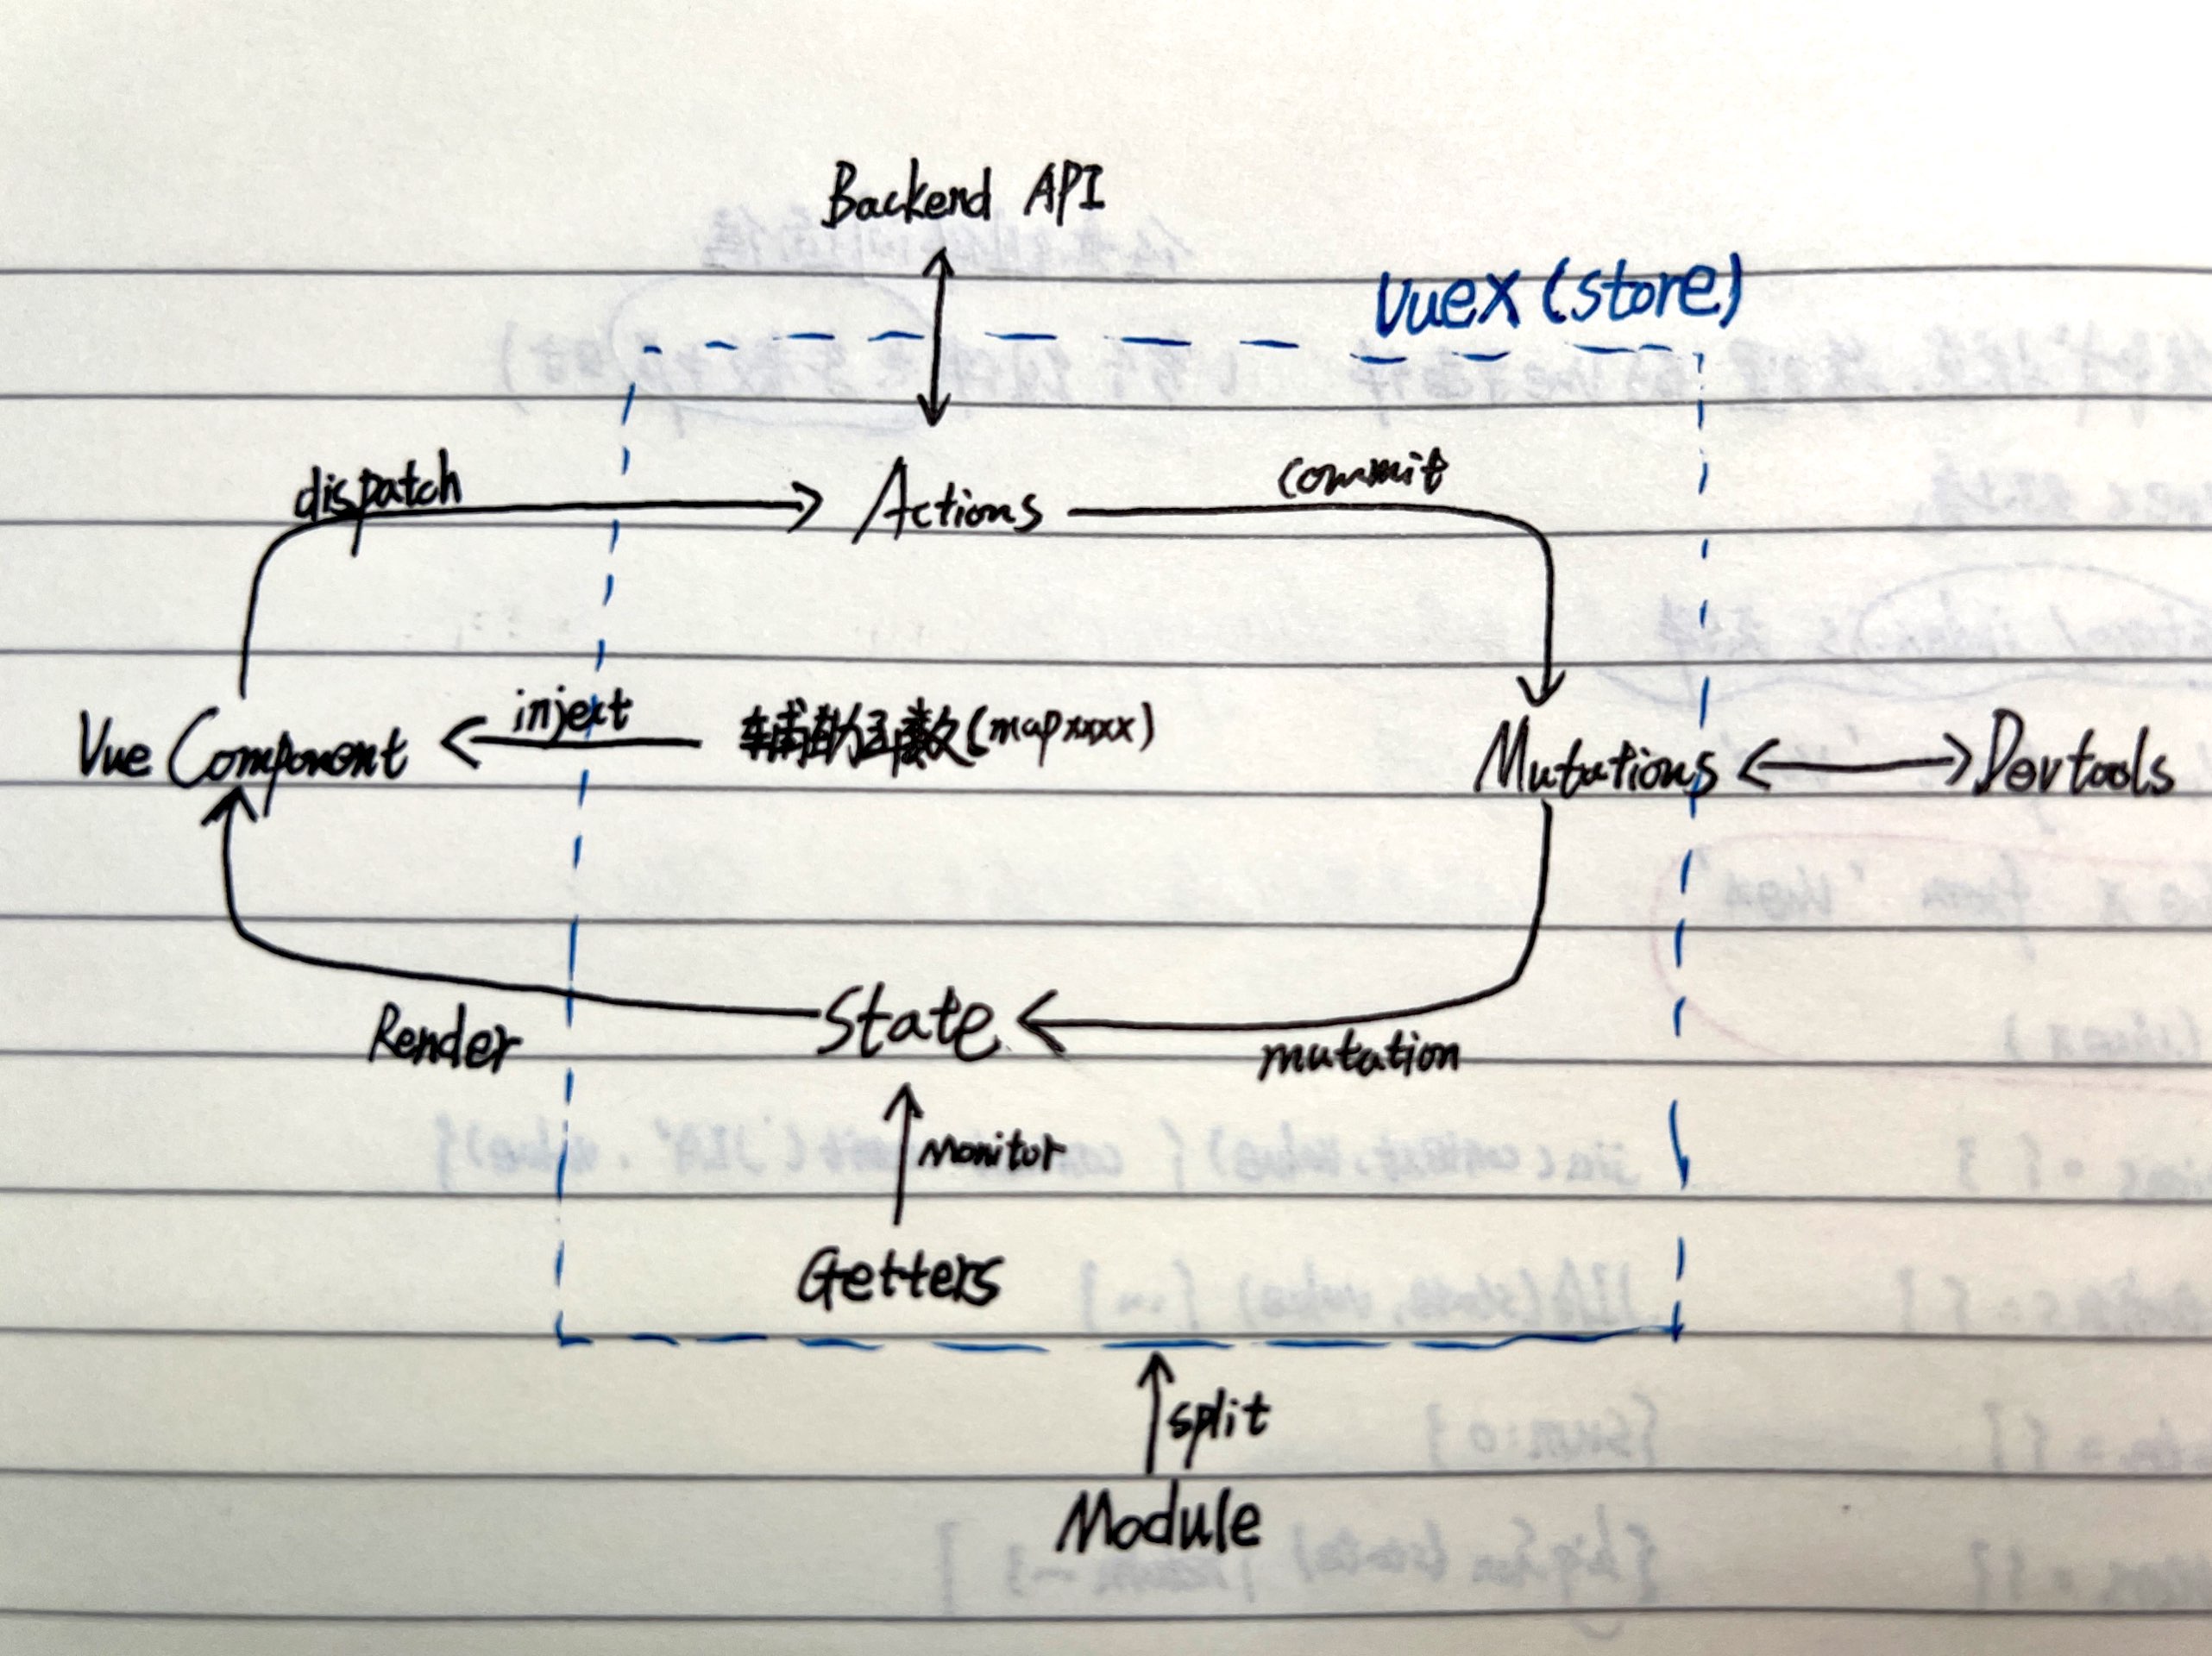 Backend API
vuex (store)
dispatch
Actions
commit
Vue Component
inject
辅助函数(mapxxxx)
Mutations
Devtools
Render
State
mutation
Monitor
Getters
split
Module